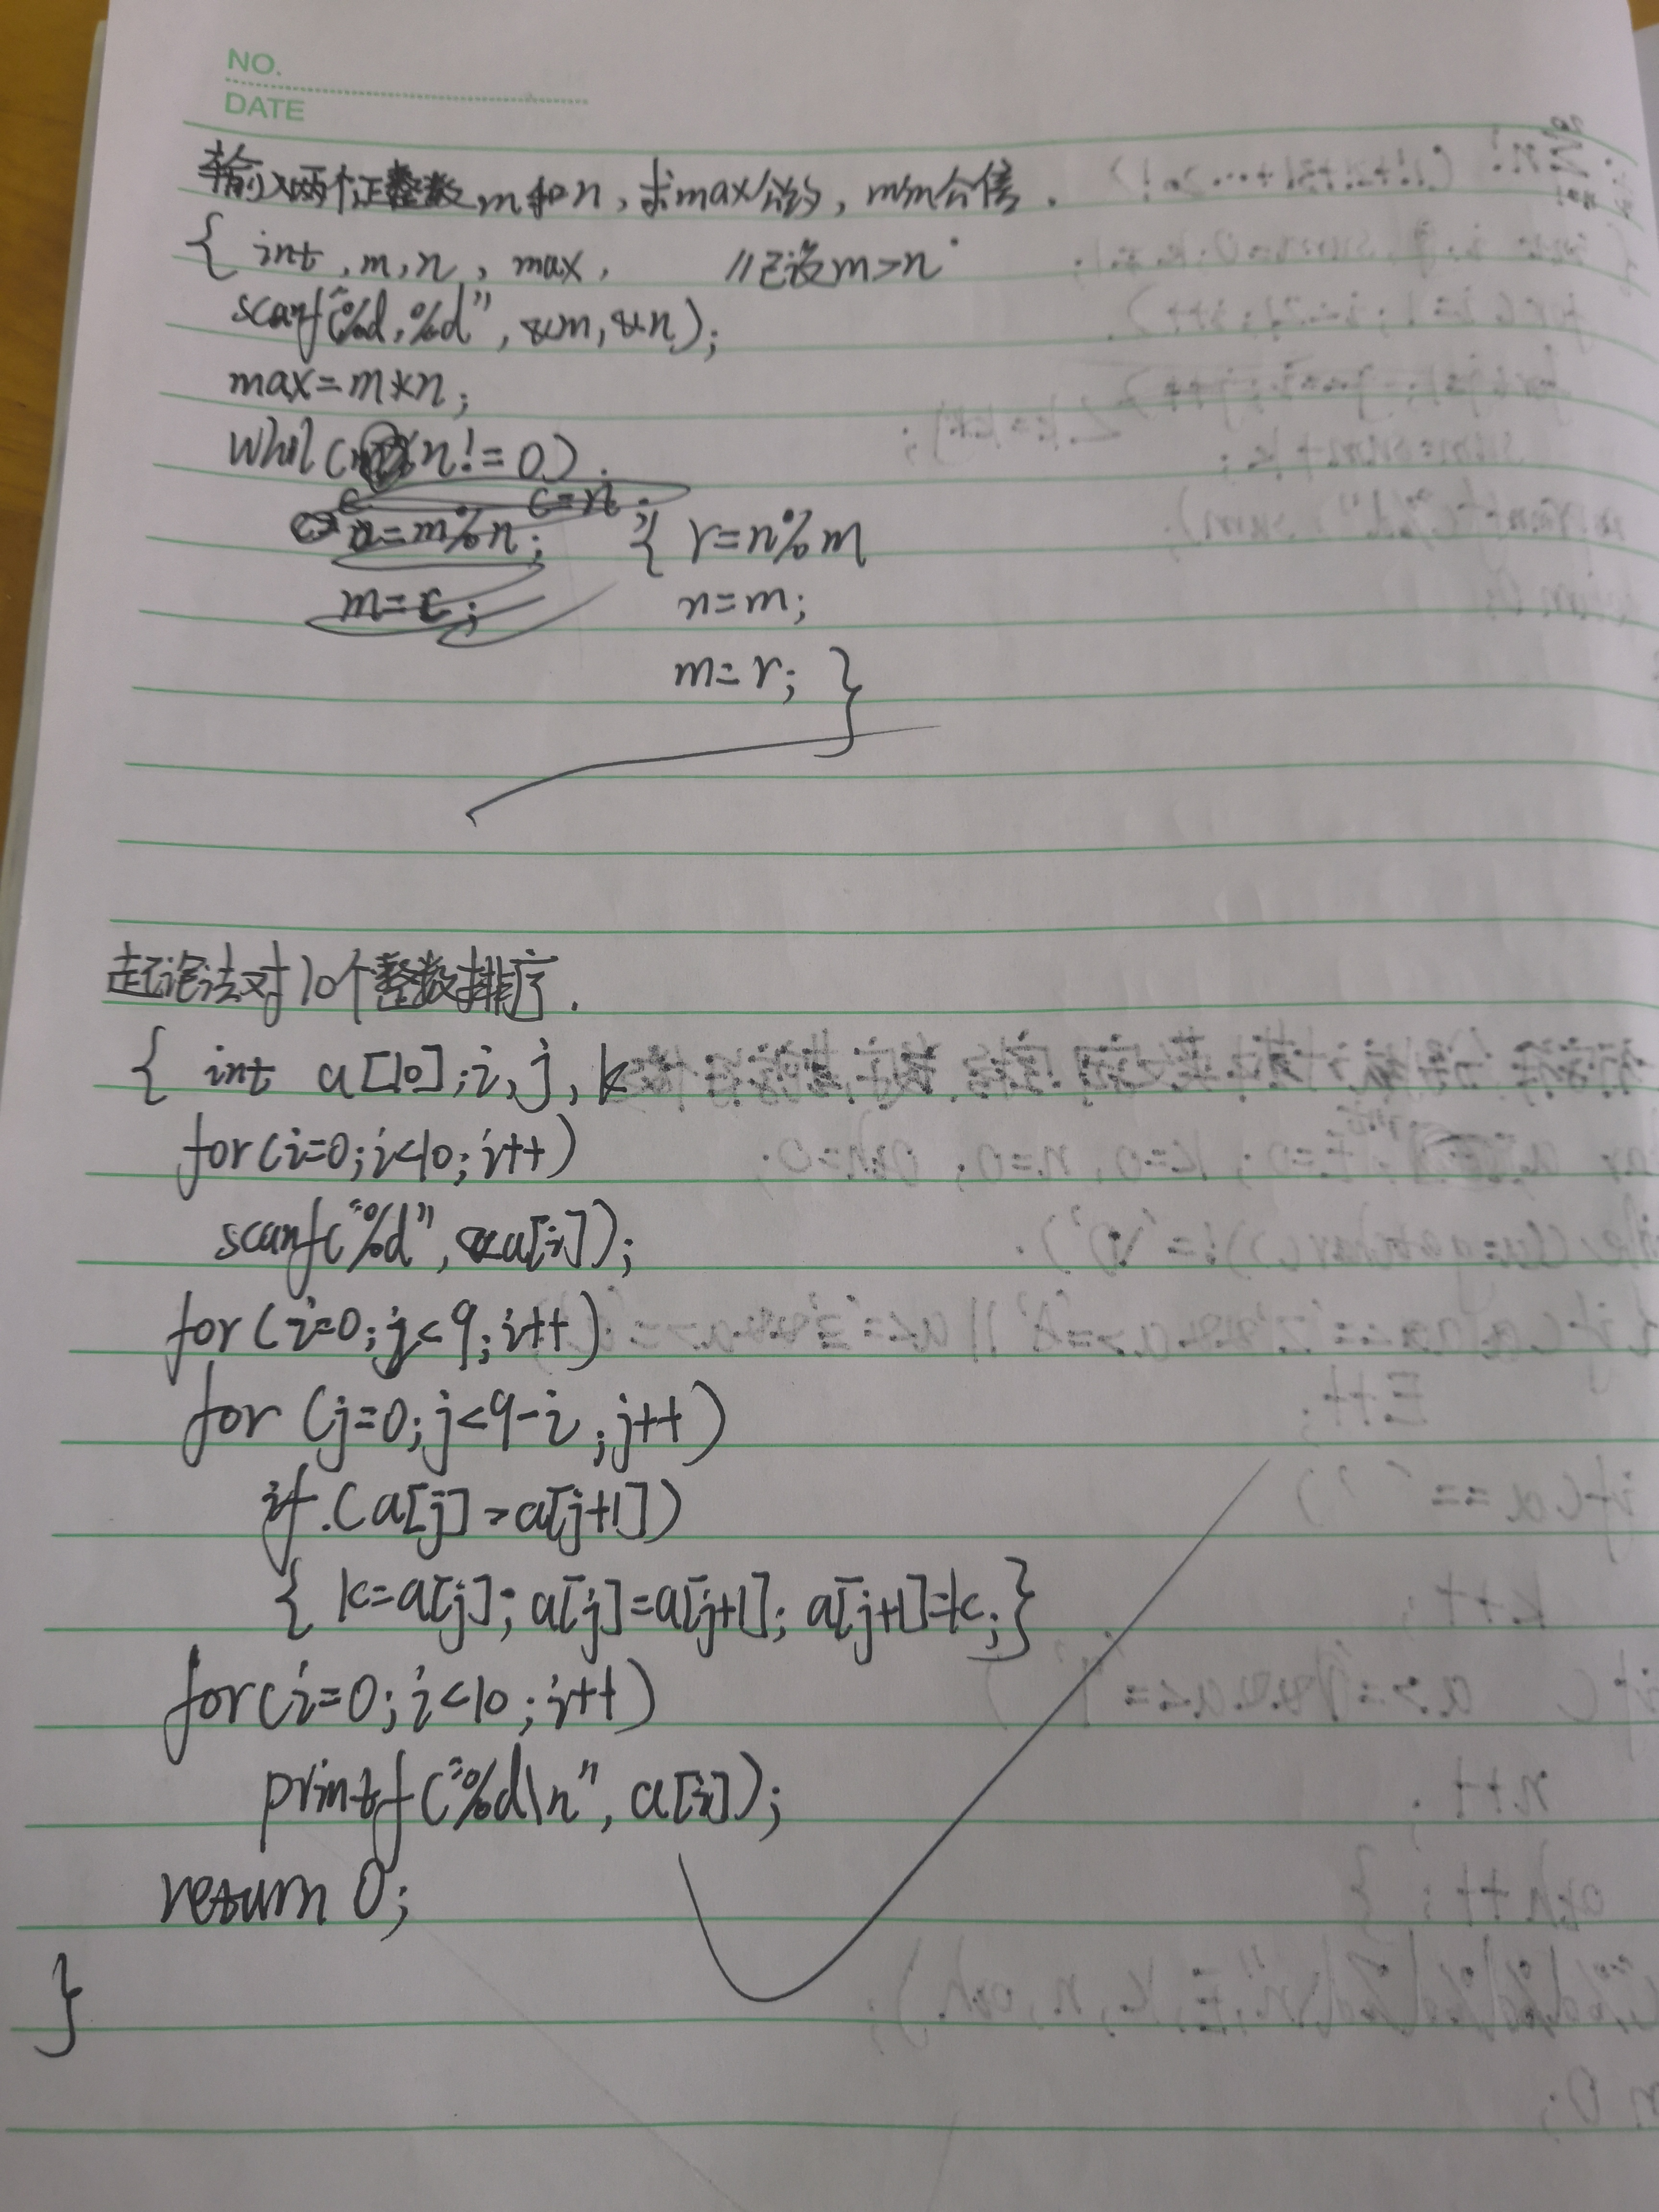 NO.
DATE
输入两个正整数m和n,求max公约,min公倍.
{ int, m, n, max, //已设m>n
scanf("%d,%d",&m,&n);
max=m*n;
whil(n!=0)
c=n;
n=m%n; { r=n%m
m=c; n=m;
m=r; }
起泡法对10个整数排序.
{ int a[10];i,j,k
for(i=0;i<10;i++)
scanf("%d",&a[i]);
for(i=0;j<9;i++)
for(j=0;j<9-i;j++)
if.(a[j]>a[j+1])
{ k=a[j]; a[j]=a[j+1]; a[j+1]=k;}
for(i=0;i<10;i++)
printf("%d\n",a[i]);
return 0;
}